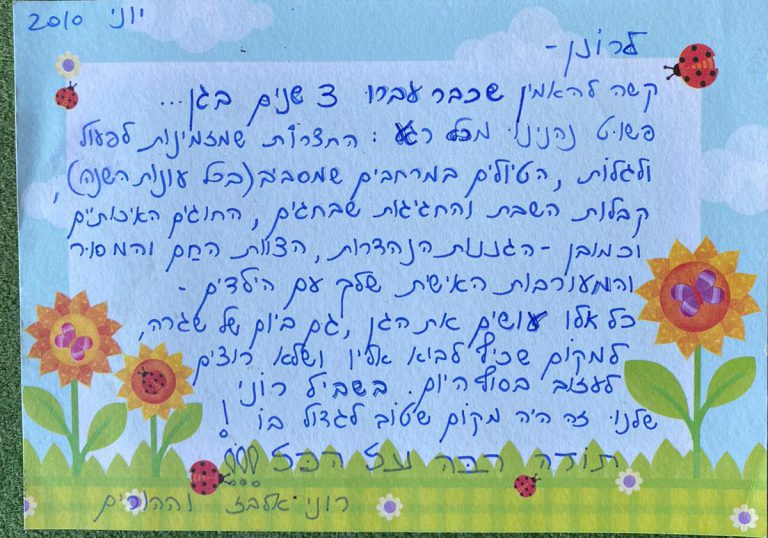 יוני 2010
לרונן -
קשה להאמין שכבר עברו 3 שנים בגן...
פשוט נהנינו מכל רגע: החצרות שמזמינות לפעול
ולגלות, הטיולים במרחבים שמסביב (בכל עונות השנה),
קבלות השבת והחגיגות שבחגים, החוגים האיכותיים
וכמובן - הגננות הנהדרות, הצוות החם והמסור
והמעורבות האישית שלך עם הילדים -
כל אלו עושים את הגן, גם ביום של שגרה,
למקום שכיף לבוא אליו ושלא רוצים
לעזוב בסוף היום. בשביל רוני
שלנו זה היה מקום שטוב לגדול בו!
תודה רבה על הכל!!!
רוני אלבז וההורים